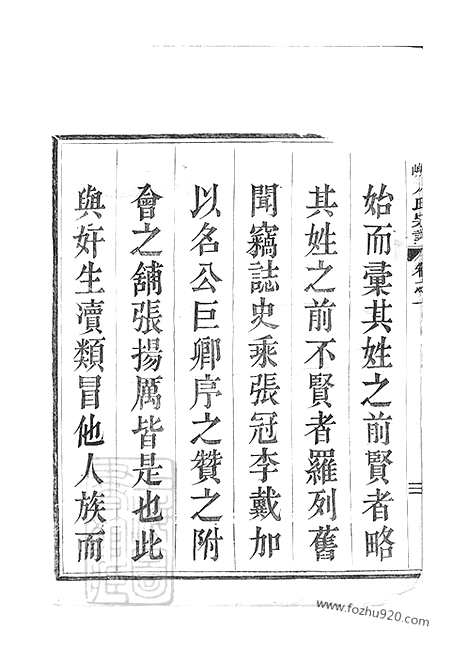 始而彚其姓之前賢者略
其姓之前不賢者羅列舊
聞竊誌史乘張冠李戴加
以名公巨卿序之贊之附
會之舖張揚厲皆是也此
與奸生瀆類冒他人族而
www.fozhu920.com